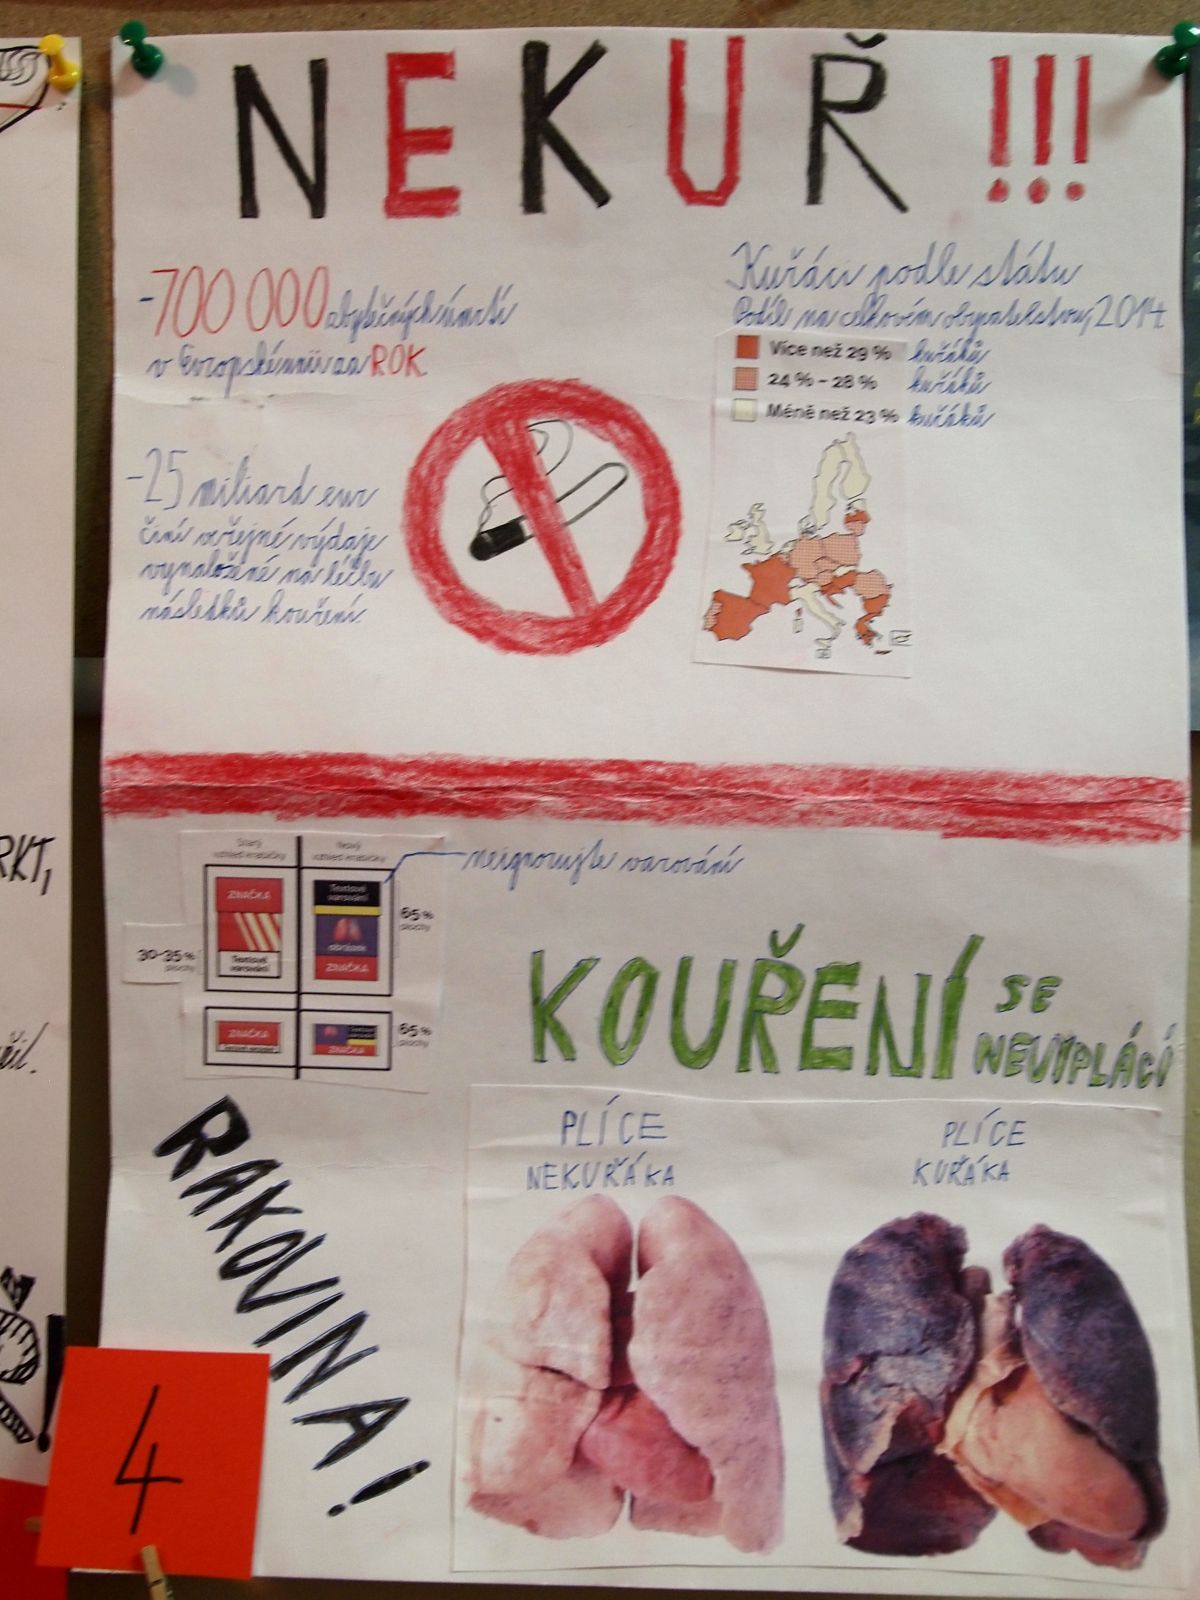 NEKUŘ !!!
-700 000 zbytečných úmrtí
v Evropské unii za ROK
-25 miliard eur
činí veřejné výdaje
vynaložené na léčbu
následků kouření.
Kuřáci podle státu
Podíl na celkovém obyvatelstvu, 2014
Více než 29 % kuřáků
24 % - 28 % kuřáků
Méně než 23 % kuřáků
Starý
vzhled krabičky
Nový
vzhled krabičky
neignorujte varování
ZNAČKA
Textové
varování
30-35 %
plochy
Textové
varování
obrázek
ZNAČKA
65 %
plochy
ZNAČKA
65 %
plochy
KOUŘENÍ SE
NEVYPLÁCÍ
RAKOVINA!
PLÍCE
NEKUŘÁKA
PLÍCE
KUŘÁKA
4
RKT,